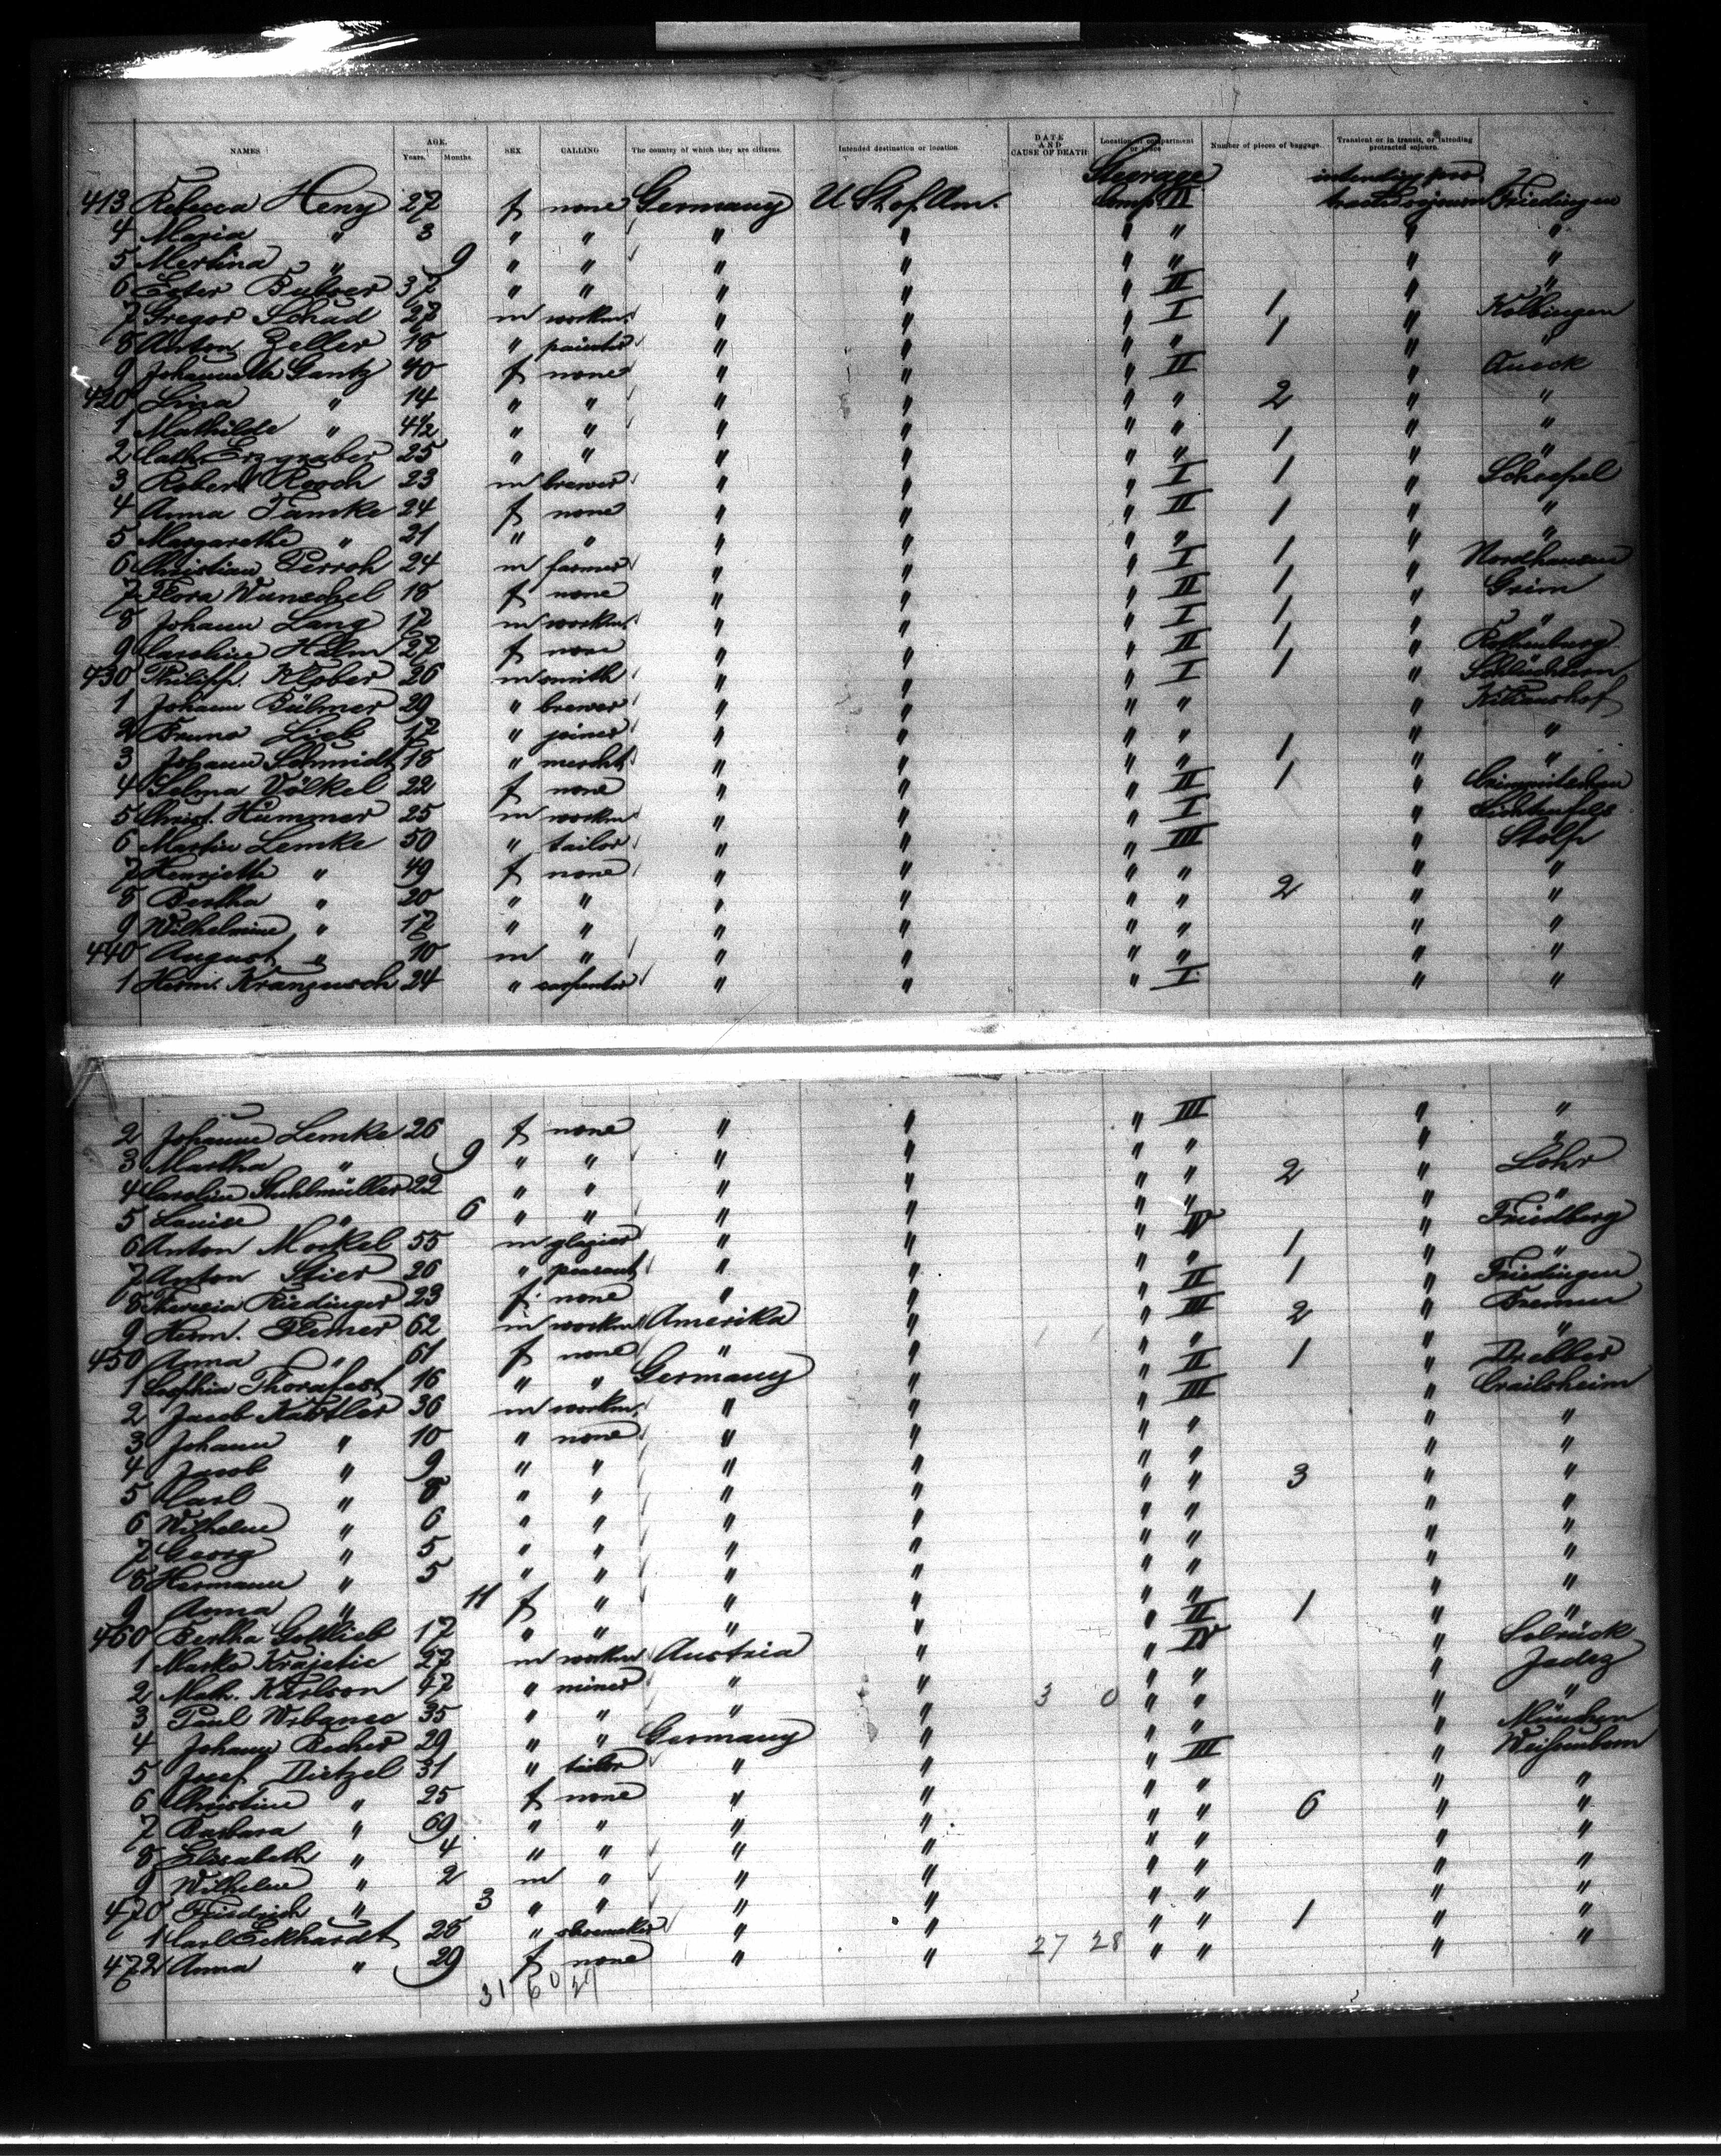 NAMES AGE. Years. Months. SEX. CALLING The country of which they are citizens. Intended destination or location. DATE AND CAUSE OF DEATH Location of compartment or space Number of pieces of baggage. Transient or in transit, or intending protracted sojourn.
Steerage intending pro
413 Rebecca Heny 27 f none Germany U St. of Am. Comp. II tracted sojourn Friedingen
4 Maria " 3 " " " " " " " "
5 Mertina " 9 " " " " " " " "
6 Ester Bulver 37 " " " " " II " "
7 Gregor Schad 27 m workm. " " " I 1 " Kolbingen
8 Anton Zeller 18 " painter " " " " 1 " "
9 Johannethe Gantz 40 f none " " " II " Aueck
420 Lina " 14 " " " " " " 2 " "
1 Mathilde " 4 1/2 " " " " " " " "
2 Cath. Erzgraber 25 " " " " " " 1 " "
3 Robert Rooch 23 m brewer " " " I 1 " Schoepel
4 Anna Tamke 24 f none " " " II 1 " "
5 Margarethe " 21 " " " " " " " "
6 Christian Perroh 24 m farmer " " " I 1 " Nordhausen
7 Flora Wunschel 18 f none " " " II 1 " Grim
8 Johann Lang 17 m workm. " " " I 1 " "
9 Caroline Halm 27 f none " " " II 1 " Rothenburg
430 Philipp Klober 26 m smith " " " I 1 " Schlüchtern
1 Johann Bülmer 29 " brewer " " " " " Kilianshof
2 Bruno Lieb 17 " joiner " " " " " "
3 Johann Schmidt 18 " mercht. " " " " 1 " "
4 Selma Völkel 22 f none " " " II 1 " Crimmitschau
5 Christ. Hümmer 25 m workm " " " I " Lichtenfels
6 Martin Lemke 50 " tailor " " " III " Stolp
7 Henriette " 49 f none " " " " " "
8 Bertha " 20 " " " " " " 2 " "
9 Wilhelmine " 17 " " " " " " " "
440 August " 10 m " " " " " " "
1 Herm. Kranzusch 24 " carpenter " " " I " "
2 Johanne Lemke 26 f none " " " III " "
3 Martha " 9 " " " " " " " "
4 Caroline Stuhlmüller 22 " " " " " " 2 " Lohr
5 Louise " 6 " " " " " " " "
6 Anton Morkel 55 m glazier " " " IV 1 " Friedberg
7 Anton Stier 26 " peasant " " " " 1 " "
8 Theresia Riedinger 23 f none " " " II " Friedingen
9 Herm. Flemer 62 m workm. Amerika " " III 2 " Bremen
450 Anna " 61 f none " " " " " "
1 Sophia Thorafest 16 " " Germany " " II 1 " Drebber
2 Jacob Kastler 36 m workm. " " " III " Crailsheim
3 Johann " 10 " none " " " " " "
4 Jacob " 9 " " " " " " " "
5 Carl " 8 " " " " " " 3 " "
6 Wilhelm " 6 " " " " " " " "
7 Georg " 5 " " " " " " " "
8 Hermann " 5 " " " " " " " "
9 Anna " 11 f " " " " " " "
460 Bertha Gottlieb 17 " " " " " II 1 " "
1 Marko Krajetic 27 m workm Austria " " IV " Selrück
2 Math. Karlson 47 " miner " " " " " Jadez
3 Paul Urbanec 35 " " " " 3 0 " " " "
4 Johann Recher 29 " " Germany " " " " München
5 Josef Dietzel 31 " tailor " " " III " Weissenborn
6 Christine " 25 f none " " " " " "
7 Barbara " 69 " " " " " " 6 " "
8 Elisabeth " 4 " " " " " " " "
9 Wilhelm " 2 m " " " " " " "
470 Friedrich " 3 " " " " " " " "
1 Carl Eckhardt 26 " shoemaker " " " " 1 " "
472 Anna " 29 f none " " 27 28 " " " "
31 60 27